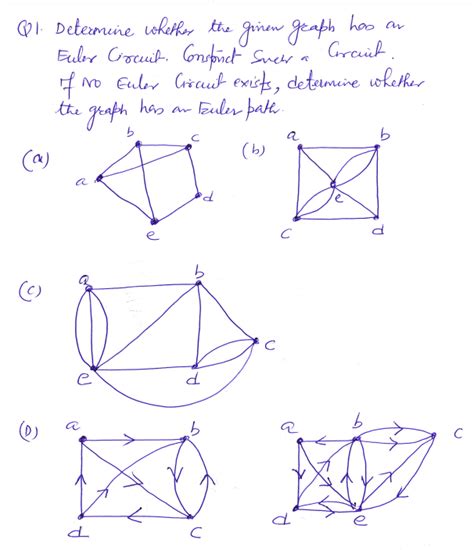 Q1. Determine whether the given graph has an
Euler Circuit. Construct Such a Circuit.
If No Euler Circuit exists, determine whether
the graph has an Euler path.
(a)
b
c
a
d
e
(b)
a
b
e
c
d
(c)
a
b
c
e
d
(D)
a
b
d
c
a
b
c
d
e